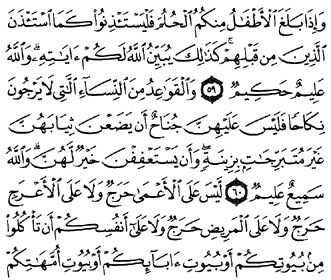 وَإِذَا بَلَغَ ٱلْأَطْفَٰلُ مِنكُمُ ٱلْحُلُمَ فَلْيَسْتَـْٔذِنُوا۟ كَمَا ٱسْتَـْٔذَنَ
ٱلَّذِينَ مِن قَبْلِهِمْ ۚ كَذَٰلِكَ يُبَيِّنُ ٱللَّهُ لَكُمْ ءَايَٰتِهِۦ ۗ وَٱللَّهُ
عَلِيمٌ حَكِيمٌ ٥٩ وَٱلْقَوَٰعِدُ مِنَ ٱلنِّسَآءِ ٱلَّٰتِى لَا يَرْجُونَ
نِكَاحًا فَلَيْسَ عَلَيْهِنَّ جُنَاحٌ أَن يَضَعْنَ ثِيَابَهُنَّ
غَيْرَ مُتَبَرِّجَٰتٍۭ بِزِينَةٍ ۖ وَأَن يَسْتَعْفِفْنَ خَيْرٌ لَّهُنَّ ۗ وَٱللَّهُ
سَمِيعٌ عَلِيمٌ ٦٠ لَّيْسَ عَلَى ٱلْأَعْمَىٰ حَرَجٌ وَلَا عَلَى ٱلْأَعْرَجِ
حَرَجٌ وَلَا عَلَى ٱلْمَرِيضِ حَرَجٌ وَلَا عَلَىٰٓ أَنفُسِكُمْ أَن تَأْكُلُوا۟
مِنۢ بُيُوتِكُمْ أَوْ بُيُوتِ ءَابَآئِكُمْ أَوْ بُيُوتِ أُمَّهَٰتِكُمْ